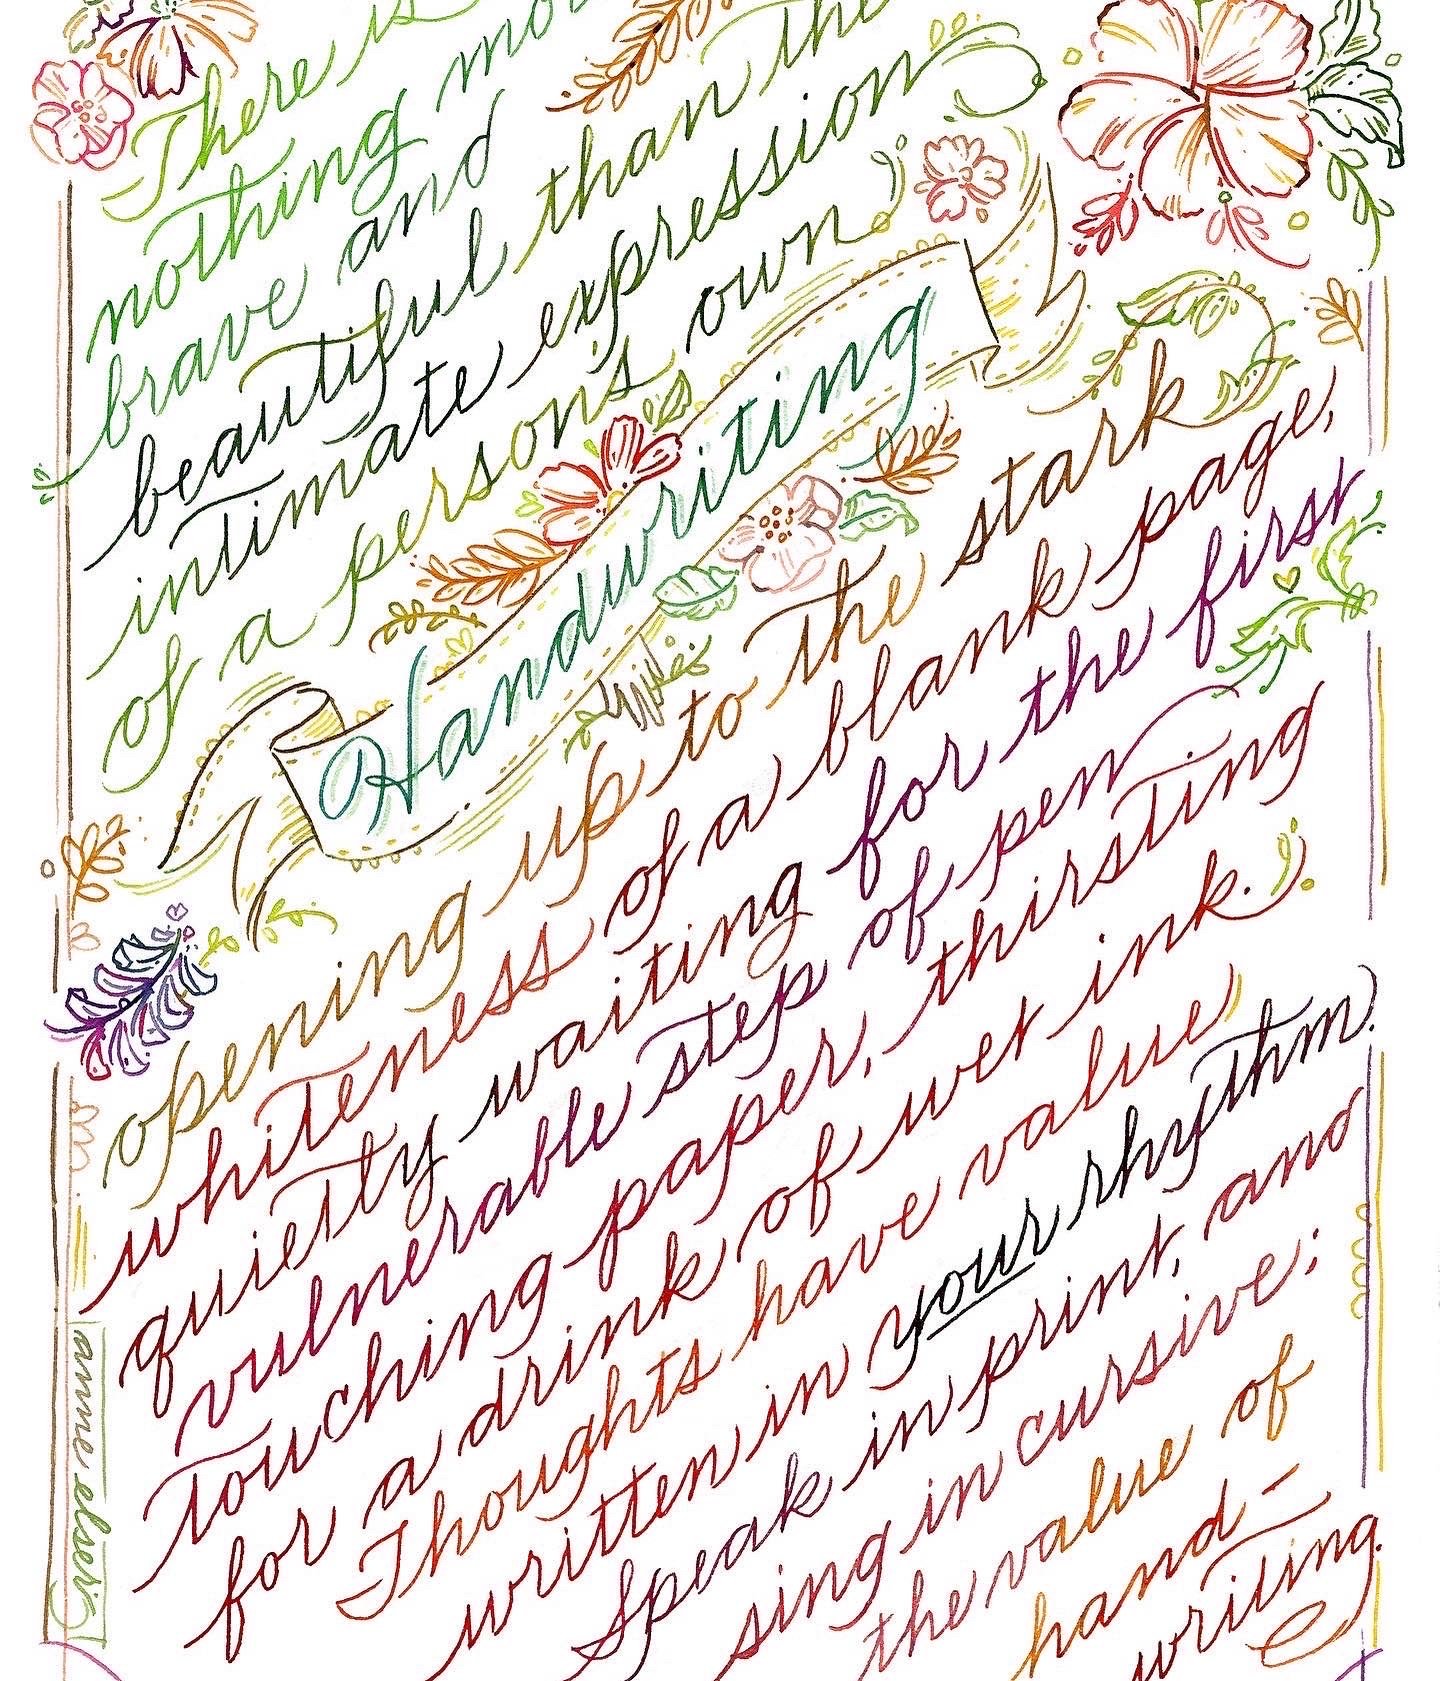 There is
nothing mo
brave and
beautiful than the
intimate expression
of a person's own
Handwriting
opening up to the stark
whiteness of a blank page,
quietly waiting for the first
vulnerable step of pen
touching paper, thirsting
for a drink of wet ink.
Thoughts have value,
written in your rhythm.
Speak in print, and
sing in cursive;
the value of
hand-
writing.
anne elser